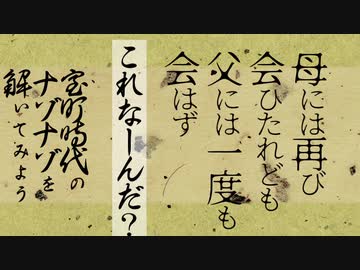 母には再び
会ひたれども
父には一度も
会はず
これなーんだ？
室町時代の
ナゾナゾを
解いてみよう